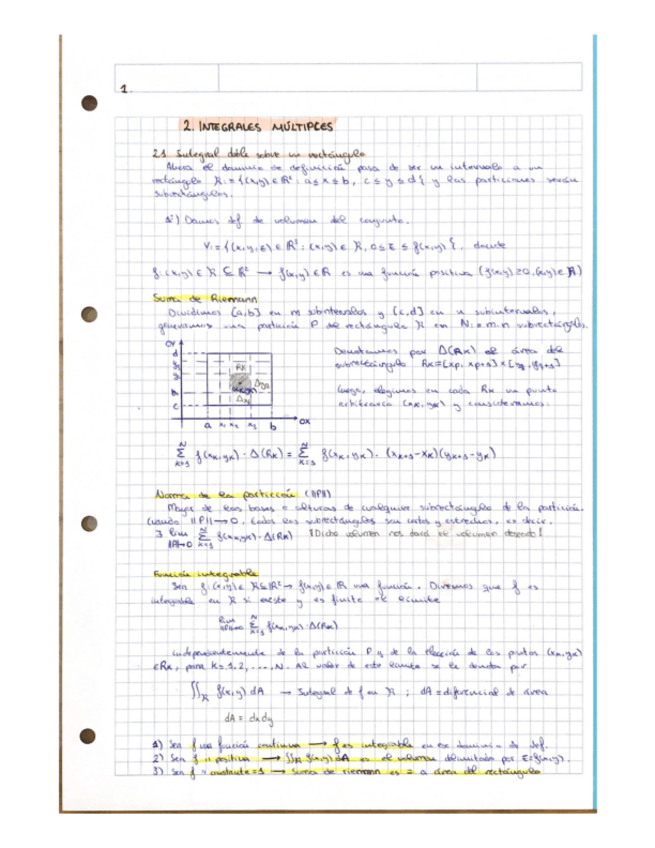 1.
2. INTEGRALES MÚLTIPLES
2.1 Integral doble sobre un rectángulo
Ahora el dominio de definición pasa de ser un intervalo a un
rectángulo R:={(x,y)∈R²: a≤x≤b, c≤y≤d} y las particiones serán
subrectángulos.
Damos def de volumen del conjunto.
V:={(x,y,z)∈R³: (x,y)∈R, 0≤z≤f(x,y)}, donde
f:(x,y)∈R⊆R² → f(x,y)∈R es una función positiva (f(x,y)≥0, (x,y)∈R)
Suma de Riemann
Dividimos [a,b] en m subintervalos y [c,d] en n subintervalos,
generamos una partición P del rectángulo R en N:=m.n subrectángulos.
Denotamos por Δ(Rk) el área del
subrectángulo
Luego, elegimos en cada Rk un punto
arbitrario (xk,yk) y consideramos:
OY
d
c
Rk
a x₁ x₂ x₃ b OX
Norma de la partición (||P||)
Mayor de las bases o alturas de cualquier subrectángulo de la partición.
Cuando ||P||→0, todos los subrectángulos son cortos y estrechos, es decir,
∃ lim Σ f(xk,yk)·Δ(Rk) ¡Dicho volumen nos dará el volumen deseado!
||P||→0
Función integrable
Sea f:(x,y)∈R⊆R²→f(x,y)∈R una función. Diremos que f es
integrable en R si existe y es finito el límite
lim Σ f(xk,yk)·Δ(Rk)
independientemente de la partición P y de la elección de los puntos (xk,yk)
∈Rk, para k=1,2,...,N. Al valor de este límite se le denota por
∬R f(x,y) dA → Integral de f en R ; dA = diferencial de área
dA = dxdy
1) Sea f una función continua → f es integrable en ese dominio de def.
2) Sea f " positiva → ∬R f(x,y)dA es el volumen delimitado por z=f(x,y).
3) Sea f " constante=1 → Suma de riemann es = a área del rectángulo